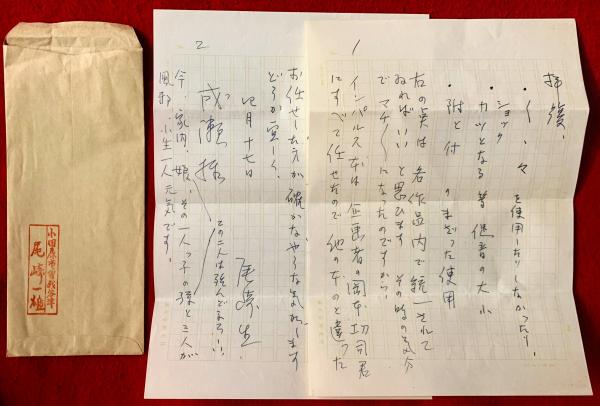 1
拝復、
・(、々 を使用したりしなかったり、
ショック
・カッとなる 等 促音の大小
・附と付 のまざった使用
右の実は 各作品内で統一されて
ゐればいい と思ひます その時の気分
でマチ〳〵になったのですから、
インパルス本は 企画者の岡本功司君
にすべて任せたので 他の本のと違った
2
お任せした方が確かなやうな気がします
どうか宜しく、
四月十七日
尾崎生
成瀬様
この二人は弦んでゐない、
今、家内、娘、その一人っ子の孫と三人が
風邪、小生一人元気です。
小田原市曽我谷津
尾崎一雄